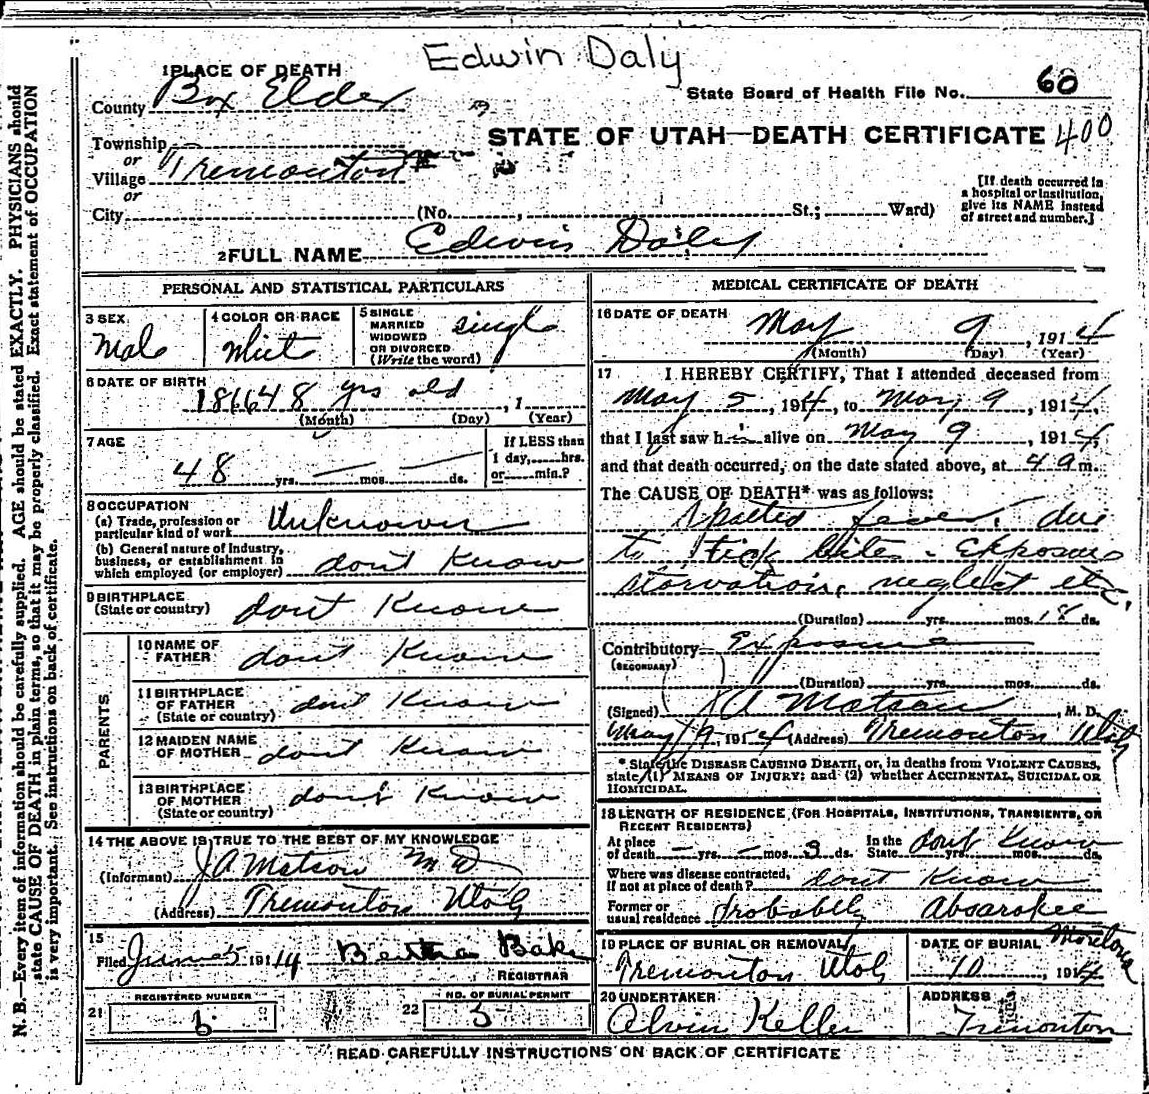 Edwin Daly
1 PLACE OF DEATH
County Box Elder
State Board of Health File No. 60
STATE OF UTAH—DEATH CERTIFICATE 400
Township
or
Village Tremonton
or
City (No. , St.; Ward)
[If death occurred in a hospital or institution, give its NAME instead of street and number.]
2 FULL NAME Edwin Daley
PERSONAL AND STATISTICAL PARTICULARS
3 SEX Male
4 COLOR OR RACE White
5 SINGLE MARRIED WIDOWED OR DIVORCED (Write the word) single
6 DATE OF BIRTH 1866 48 yrs old , 1
(Month) (Day) (Year)
7 AGE
48 yrs. — mos. — ds.
If LESS than 1 day, hrs. or min.?
8 OCCUPATION
(a) Trade, profession or particular kind of work Unknown
(b) General nature of industry, business, or establishment in which employed (or employer) dont Know
9 BIRTHPLACE (State or country) dont Know
PARENTS
10 NAME OF FATHER dont Know
11 BIRTHPLACE OF FATHER (State or country) dont Know
12 MAIDEN NAME OF MOTHER dont Know
13 BIRTHPLACE OF MOTHER (State or country) dont Know
14 THE ABOVE IS TRUE TO THE BEST OF MY KNOWLEDGE
(Informant) J A Matson M D
(Address) Tremonton Utah
15
Filed June 5 1914 Bertha Bake
REGISTRAR
21 REGISTERED NUMBER 6
22 NO. OF BURIAL PERMIT 5
MEDICAL CERTIFICATE OF DEATH
16 DATE OF DEATH May 9, 1914
(Month) (Day) (Year)
17 I HEREBY CERTIFY, That I attended deceased from
May 5, 1914, to May 9, 1914,
that I last saw him alive on May 9, 1914,
and that death occurred, on the date stated above, at 4 a m.
The CAUSE OF DEATH* was as follows:
Spotted fever, due
to tick bites - Exposure
starvation, neglect etc.
(Duration) yrs. mos. 18 ds.
Contributory Exposure
(SECONDARY)
(Duration) yrs. mos. ds.
(Signed) J A Matson, M. D.
May 9, 1914 (Address) Tremonton Utah
* State the DISEASE CAUSING DEATH, or, in deaths from VIOLENT CAUSES, state (1) MEANS OF INJURY; and (2) whether ACCIDENTAL, SUICIDAL OR HOMICIDAL.
18 LENGTH OF RESIDENCE (FOR HOSPITALS, INSTITUTIONS, TRANSIENTS, OR RECENT RESIDENTS)
At place of death — yrs. — mos. 3 ds. In the State dont Know yrs. mos. ds.
Where was disease contracted, if not at place of death? dont Know
Former or usual residence Probably Absarokee Montana
19 PLACE OF BURIAL OR REMOVAL Tremonton Utah
DATE OF BURIAL 10, 1914
20 UNDERTAKER Alvin Keller
ADDRESS Tremonton
READ CAREFULLY INSTRUCTIONS ON BACK OF CERTIFICATE
N. B.—Every item of information should be carefully supplied. AGE should be stated EXACTLY. PHYSICIANS should
state CAUSE OF DEATH in plain terms, so that it may be properly classified. Exact statement of OCCUPATION
is very important. See instructions on back of certificate.